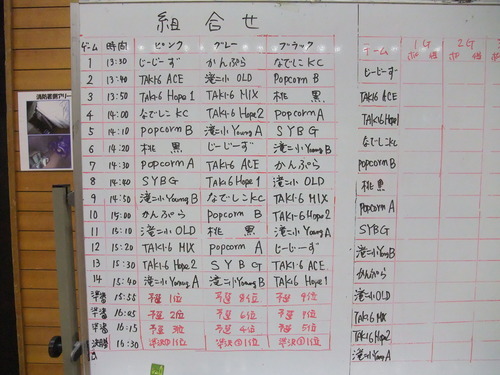 組合せ
ゲーム 時間 ピンク グレー ブラック
1 13:30 じーじーず かんぷら なでしこKC
2 13:40 TAK1-6 ACE 滝二小 OLD Popcorn B
3 13:50 TAK1-6 Hope1 TAK1-6 MIX 桃 黒
4 14:00 なでしこKC TAK1-6 Hope2 Popcorn A
5 14:10 Popcorn B 滝二小 Young A SYBG
6 14:20 桃 黒 じーじーず 滝二小 Young B
7 14:30 Popcorn A TAK1-6 ACE かんぷら
8 14:40 SYBG TAK1-6 Hope1 滝二小 OLD
9 14:50 滝二小 Young B なでしこKC TAK1-6 MIX
10 15:00 かんぷら Popcorn B TAK1-6 Hope2
11 15:10 滝二小 OLD 桃 黒 滝二小 Young A
12 15:20 TAK1-6 MIX popcorn A じーじーず
13 15:30 TAK1-6 Hope2 SYBG TAK1-6 ACE
14 15:40 滝二小 Young A 滝二小 Young B TAK1-6 Hope1
15:55 予選 1位 予選 8位 予選 9位
16:05 予選 2位 予選 6位 予選 7位
16:15 予選 3位 予選 4位 予選 5位
決勝 16:30 半決①1位 半決②1位 半決③1位
チーム 1G 2G
じーじーず
TAK1-6 ACE
TAK1-6 Hope1
なでしこKC
Popcorn B
桃 黒
Popcorn A
SYBG
滝二小 Young B
かんぷら
滝二小 OLD
TAK1-6 MIX
TAK1-6 Hope2
滝二小 Young A